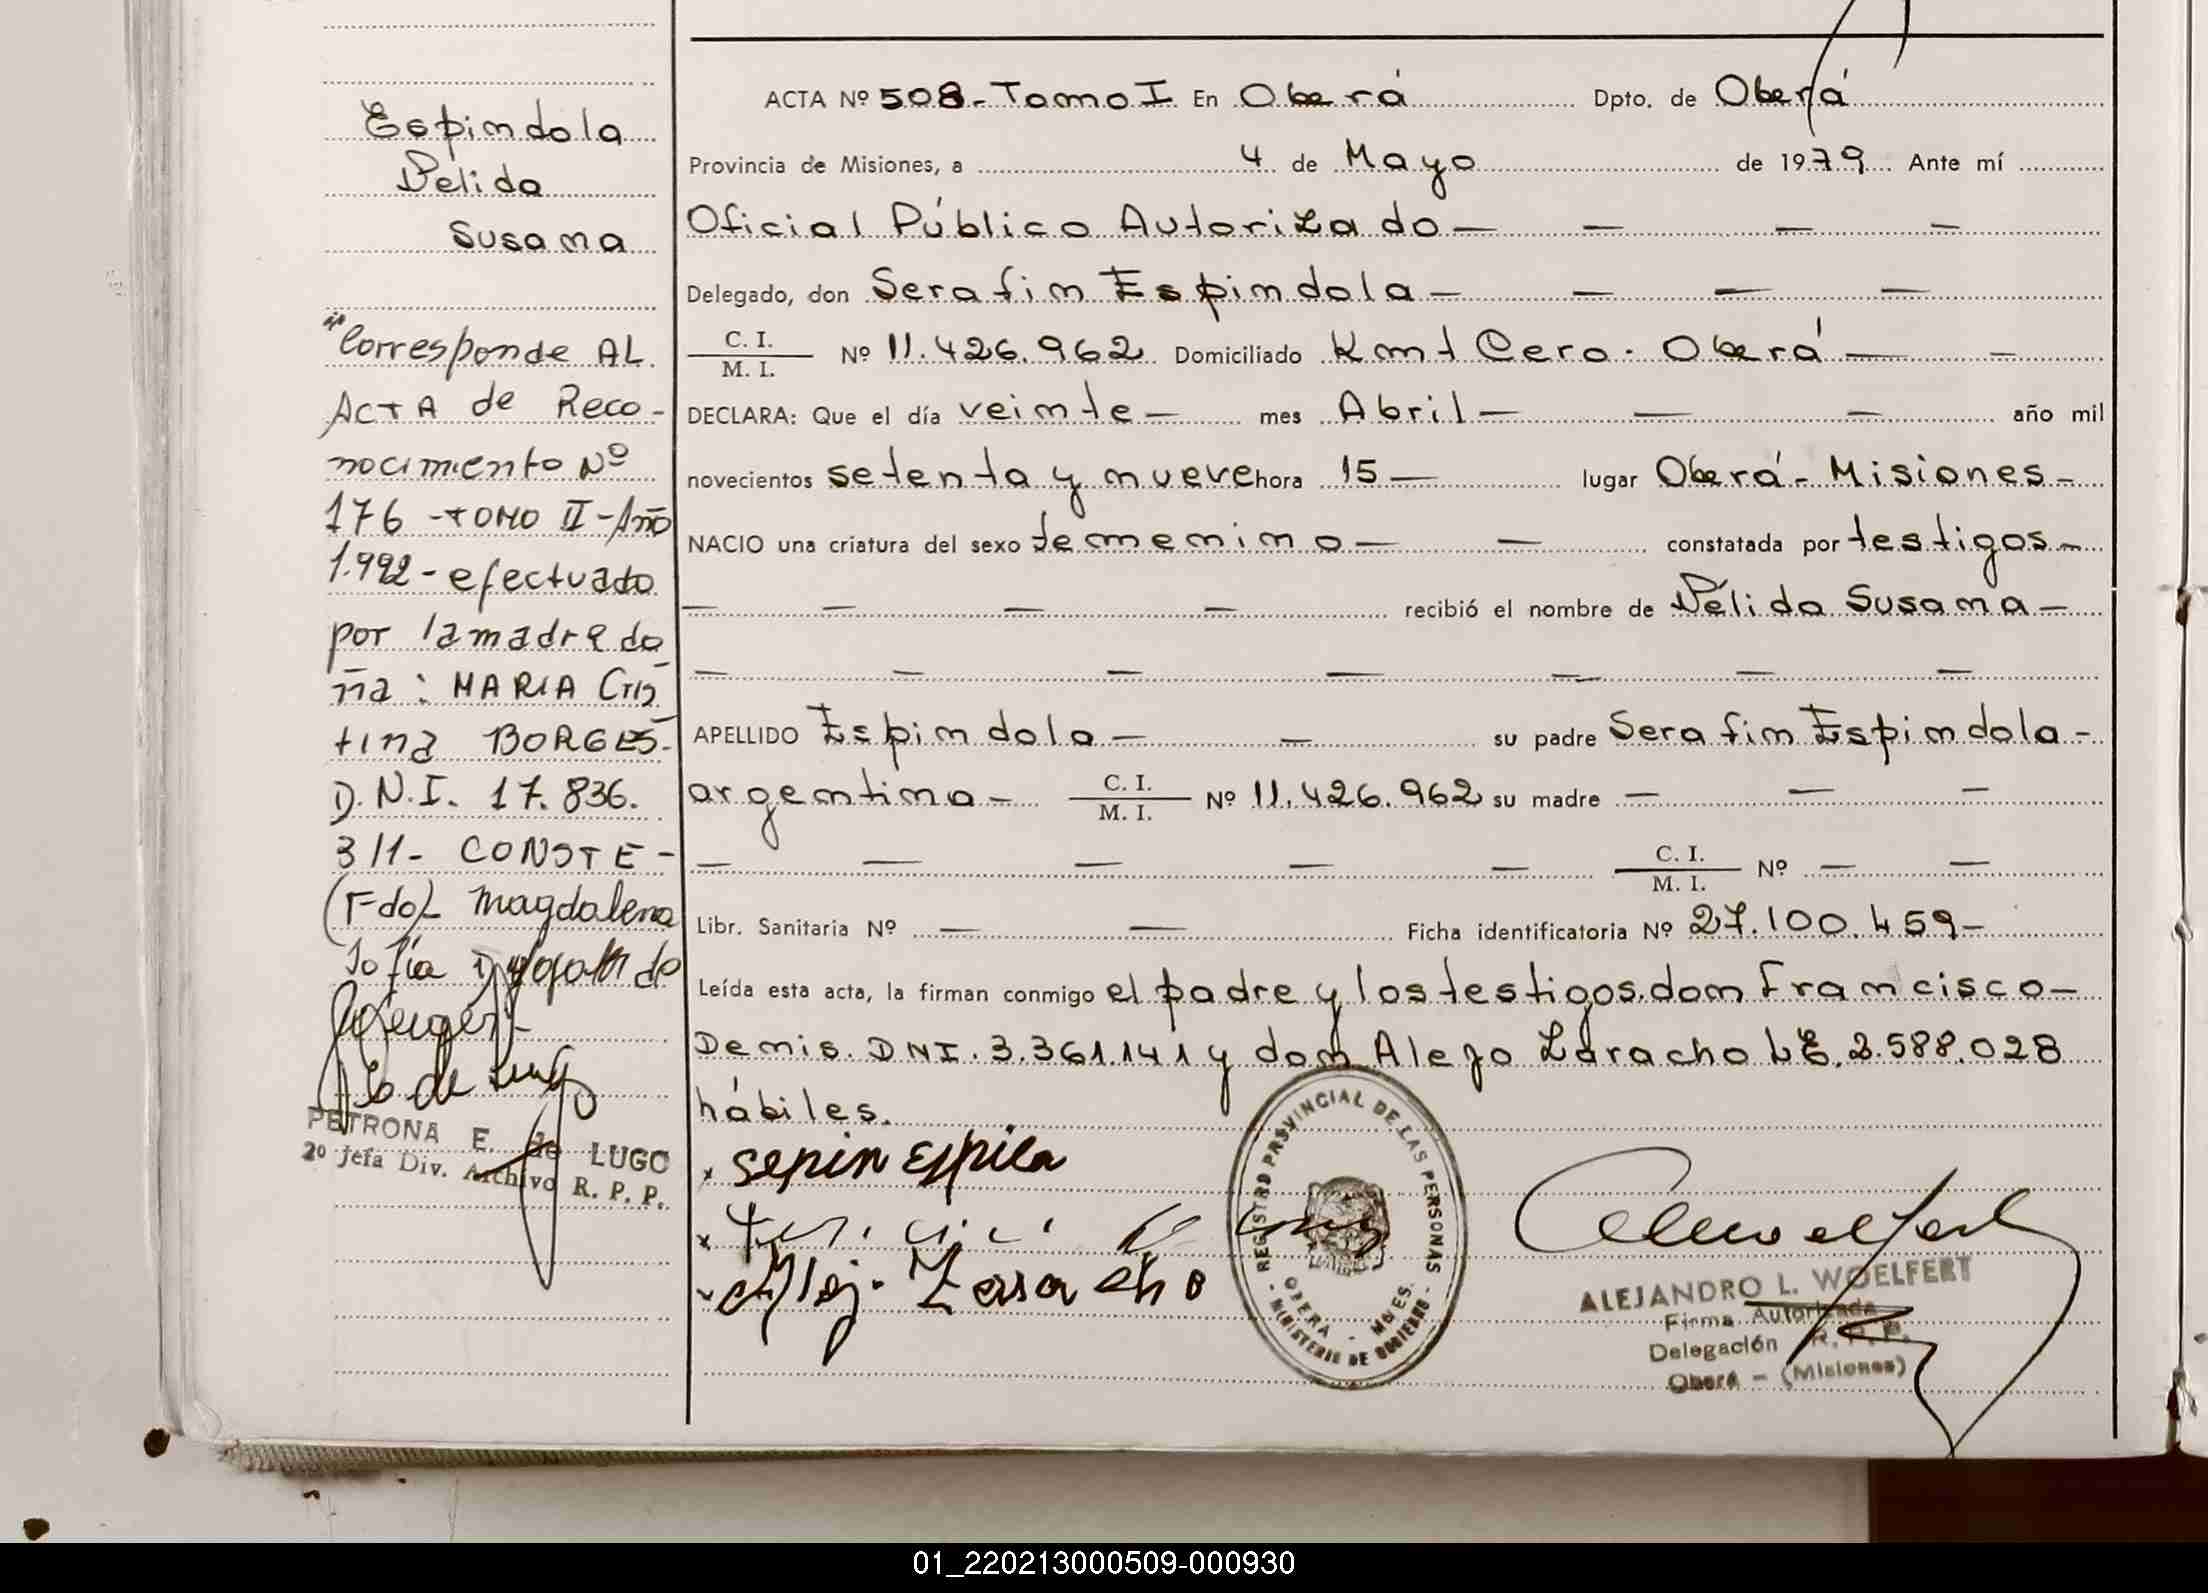 Espindola
Nélida
Susana
"Corresponde AL
ACTA de Reco-
nocimiento Nº
176 - TOMO II - Año
1.992 - efectuado
por la madre do
ña: MARIA Cris
tina BORGES-
D.N.I. 17.836.
311- CONSTE-
(Fdo) Magdalena
Sofía
PETRONA E. de LUGO
2º Jefa Div. Archivo R. P. P.
ACTA Nº 508 - Tomo I En Oberá Dpto. de Oberá
Provincia de Misiones, a 4 de Mayo de 1979 Ante mí
Oficial Público Autorizado — — — —
Delegado, don Serafin Espindola — — — —
C. I. / M. I. Nº 11.426.962 Domiciliado Kmt Cero. Oberá — —
DECLARA: Que el día veinte — mes Abril — — — año mil
novecientos setenta y nueve hora 15 — lugar Oberá - Misiones -
NACIO una criatura del sexo femenino — — constatada por testigos -
— — — — recibió el nombre de Nélida Susana —
— — — — — — —
APELLIDO Espindola — — su padre Serafin Espindola -
argentino - C. I. / M. I. Nº 11.426.962 su madre — — —
— — — — — C. I. / M. I. Nº — —
Libr. Sanitaria Nº — — Ficha identificatoria Nº 27.100.459 -
Leída esta acta, la firman conmigo el padre y los testigos, don Francisco -
Denis. DNI. 3.361.141 y don Alejo Zaracho LE. 2.588.028
hábiles.
REGISTRO PROVINCIAL DE LAS PERSONAS
OBERA - MNES.
MINISTERIO DE GOBIERNO
ALEJANDRO L. WOELFERT
Firma Autorizada
Delegación R. P. P.
Oberá - (Misiones)
01_220213000509-000930